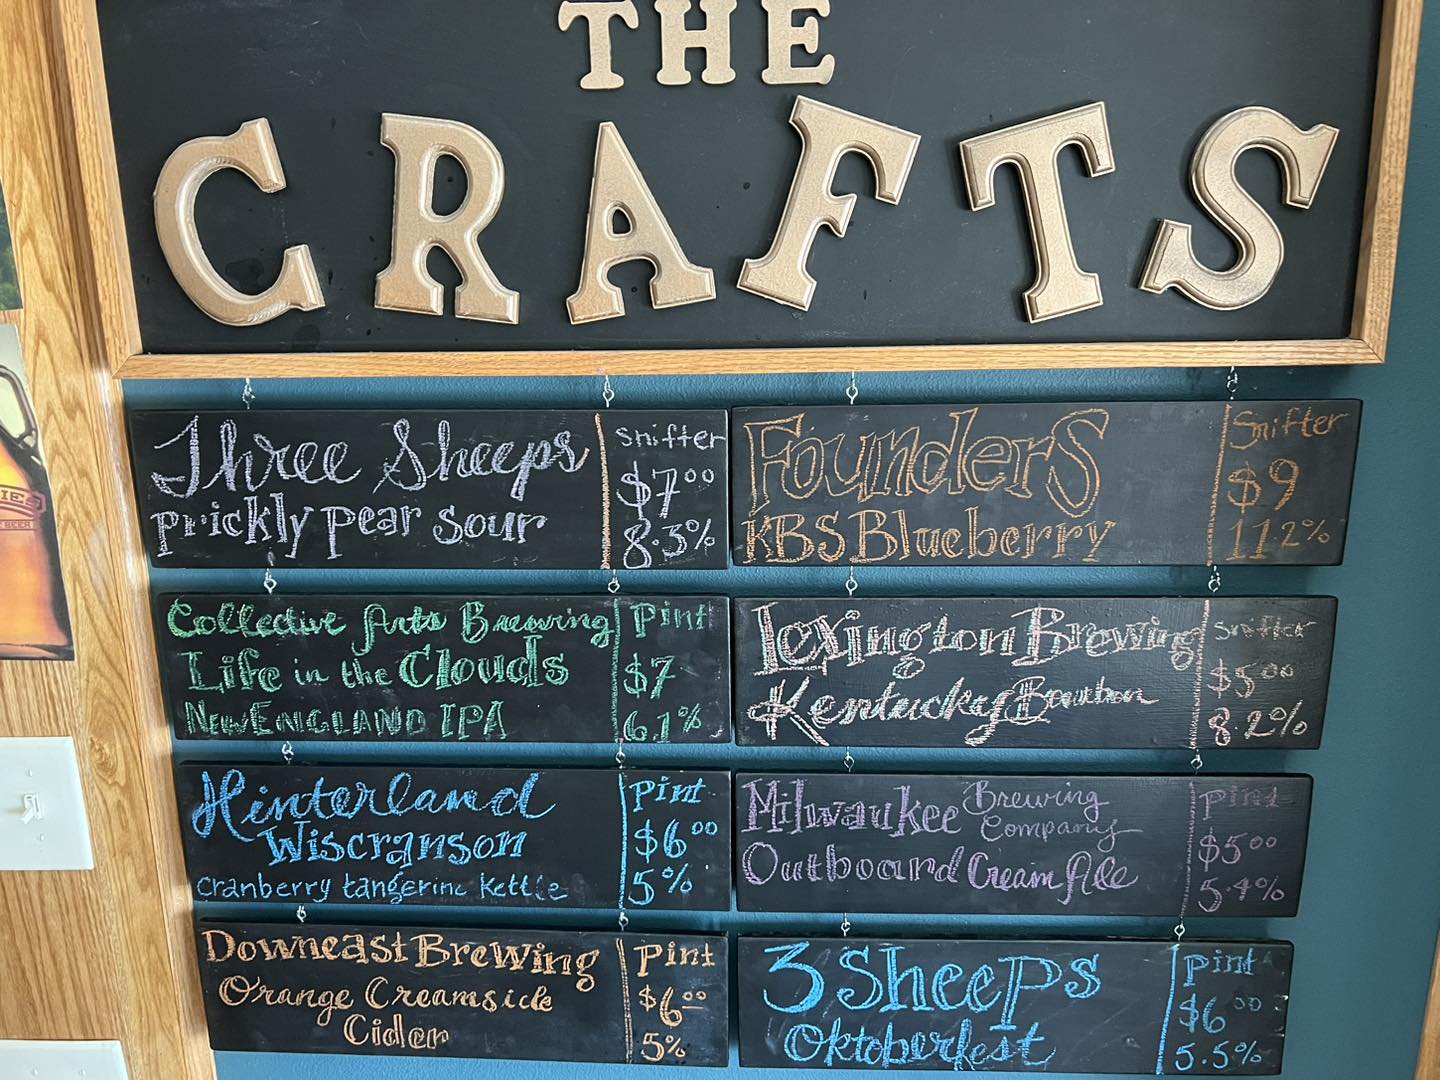 THE
CRAFTS
Three Sheeps
Prickly Pear Sour
Snifter
$7.00
8.3%
Founders
KBS Blueberry
Snifter
$9
11.2%
Collective Arts Brewing
Life in the Clouds
NEW ENGLAND IPA
Pint
$7
6.1%
Lexington Brewing
Kentucky Bourbon
Snifter
$5.00
8.2%
Hinterland
Wiscranson
Cranberry tangerine Kettle
Pint
$6.00
5%
Milwaukee Brewing Company
Outboard Cream Ale
Pint
$5.00
5.4%
Downeast Brewing
Orange Creamsicle
Cider
Pint
$6.00
5%
3 Sheeps
Oktoberfest
Pint
$6.00
5.5%